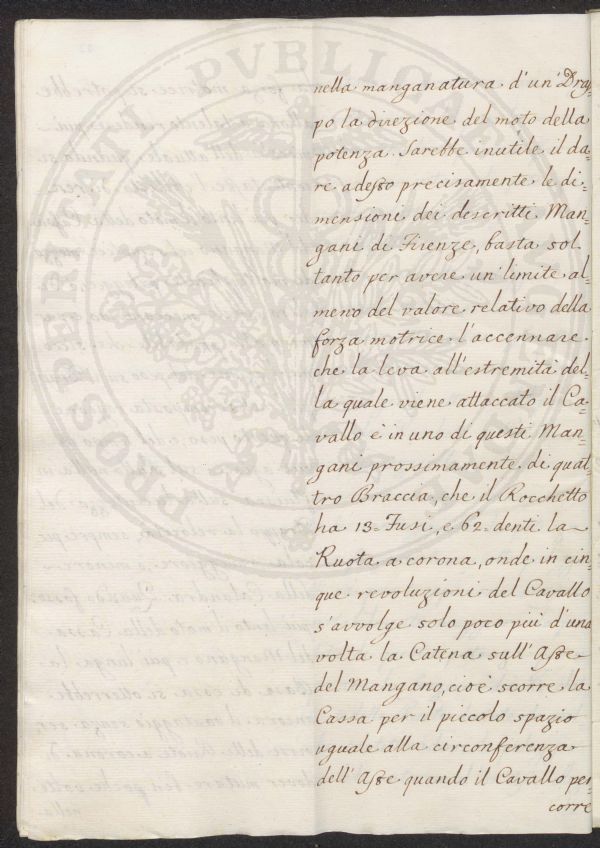 nella manganatura d'un' Drap=
po la direzione del moto della
potenza. Sarebbe inutile il da=
re adesso precisamente le di=
mensioni dei descritti Man=
gani di Firenze, basta sol=
tanto per avere un' limite al=
meno del valore relativo della
forza motrice l'accennare
che la leva all'estremità del=
la quale viene attaccato il Ca=
vallo è in uno di questi Man=
gani prossimamente di quat=
tro Braccia, che il Rocchetto
ha 13= Fusi, e 62= denti la
Ruota a corona, onde in cin=
que revoluzioni del Cavallo
s'avvolge solo poco più d'una
volta la Catena sull'Asse
del Mangano, cioè scorre la
Cassa per il piccolo spazio
uguale alla circonferenza
dell'Asse quando il Cavallo per
corre
PROSPERITATI PVBLICAE